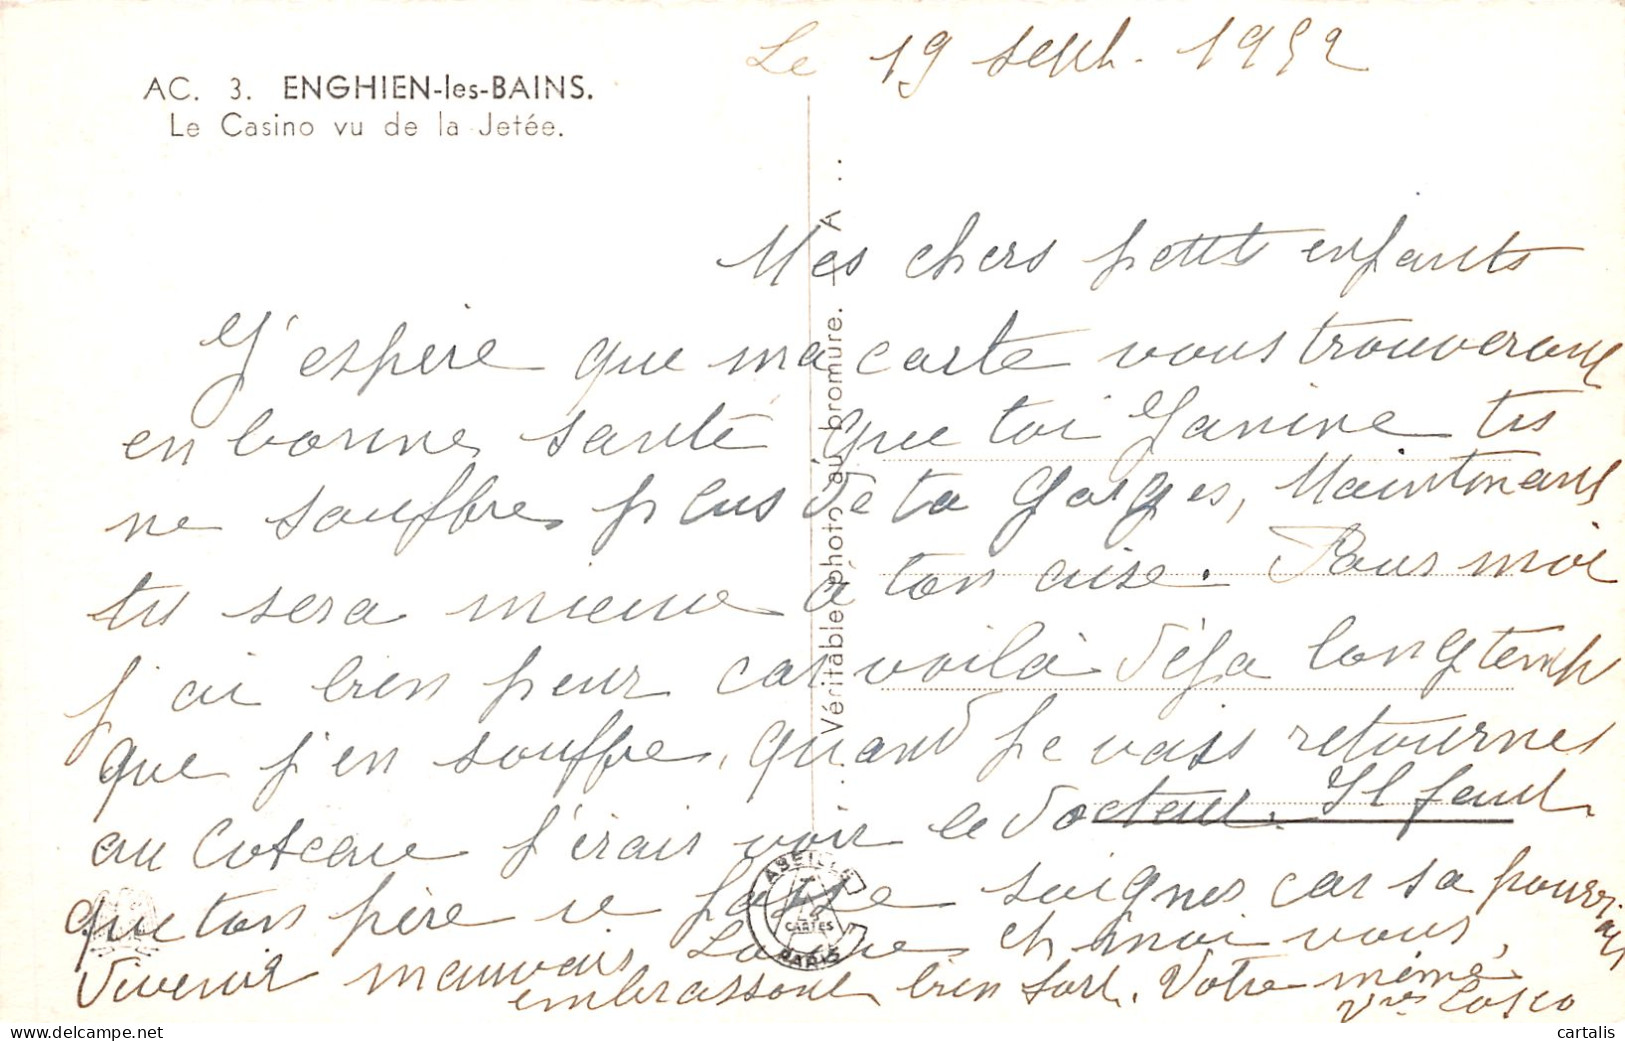 Le 19 sept. 1952
AC. 3. ENGHIEN-les-BAINS.
Le Casino vu de la Jetée.
Véritable photo au bromure. - A ..
Mes chers petits enfants
J'espère que ma carte vous trouverons
en bonne santé que toi Janine tu
ne souffre plus de ta gorges, Maintenant
tu sera mieux à ton aise. Pour moi
j'ai bien peur car voilà déja longtemps
que j'en souffre, quand je vais retourner
au Coteau j'irais voir le docteur. Il faut
que ton père se fasse soigner car sa pourrais
devenir mauvais et moi vous
embrassons bien fort. Votre mémé
Cosco
ABEILLE
CARTES
PARIS
cartalis